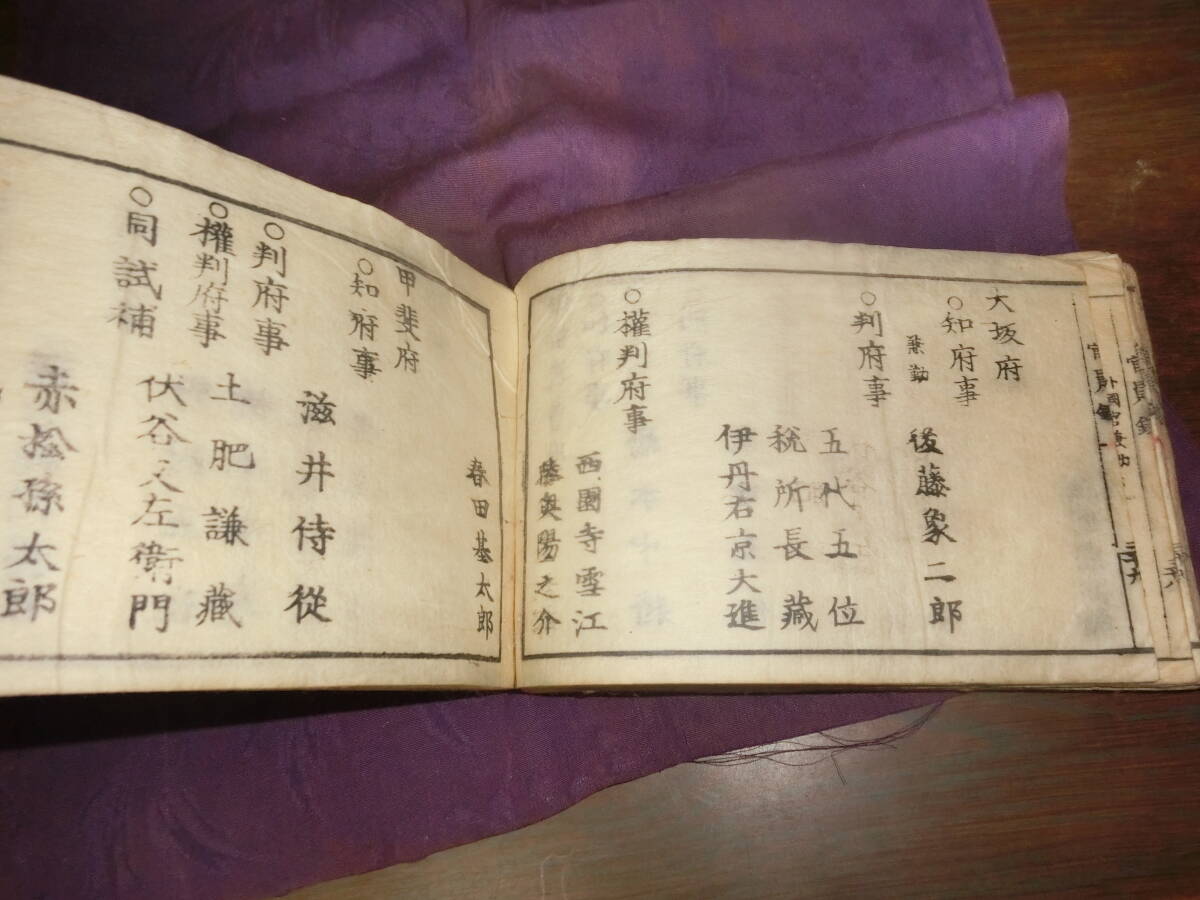 大坂府
○知府事
兼勤
後藤象二郎
○判府事
五代五位
税所長藏
伊丹右京大進
○權判府事
西園寺雪江
陸奥陽之介
春田基太郎
甲斐府
○知府事
滋井侍從
○判府事
土肥謙藏
○權判府事
伏谷又左衛門
○同試補
赤松孫太郎